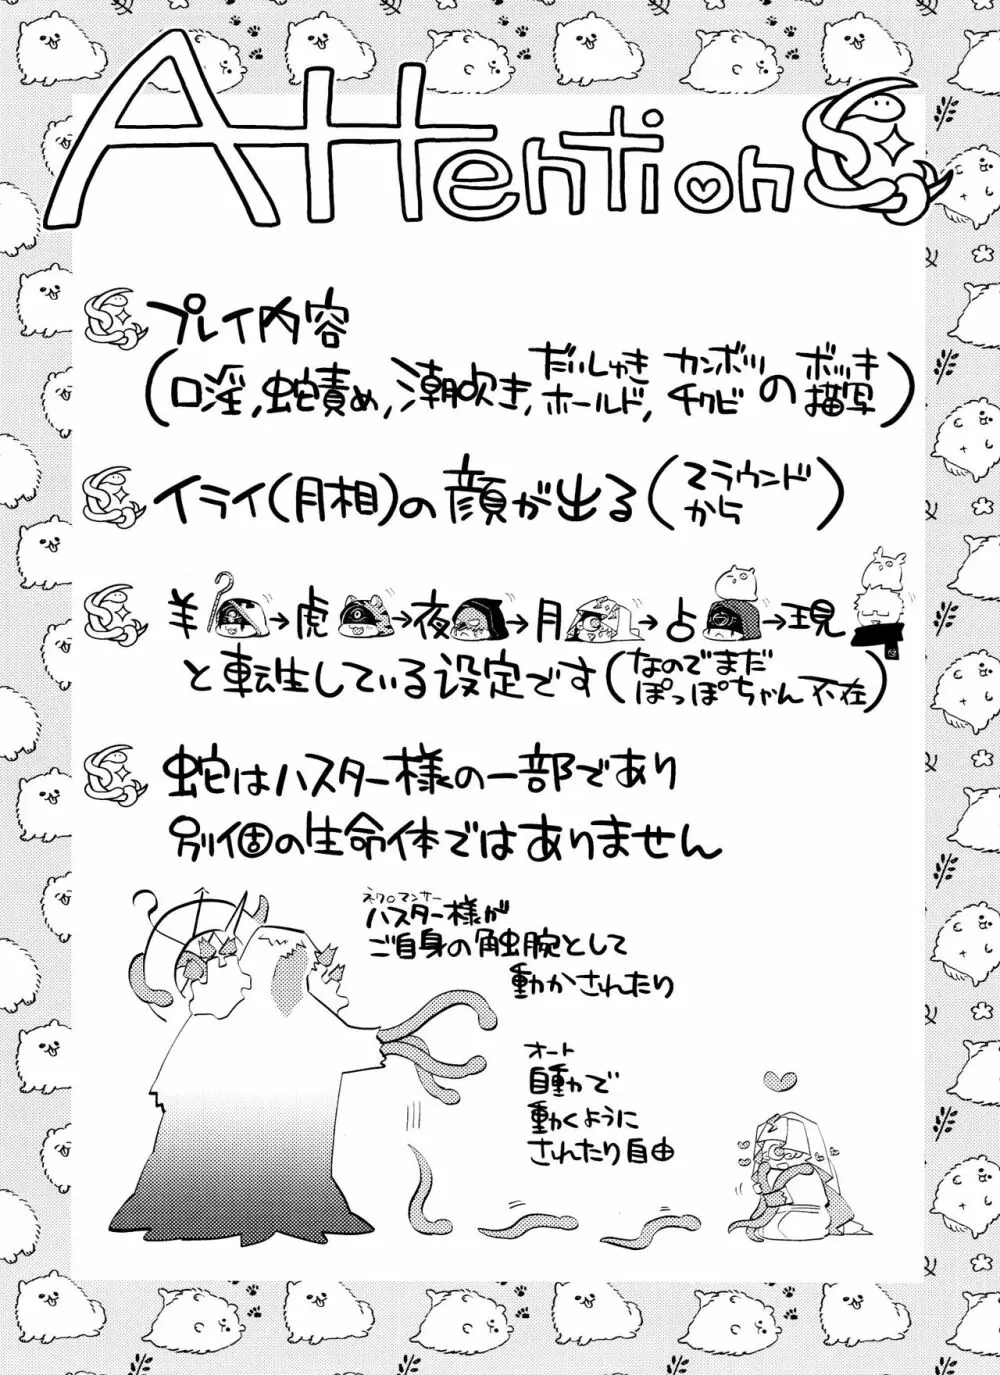 Attention
プレイ内容
(口淫,蛇責め,潮吹き,だいしゅきホールド,カンボツチクビのボッキ描写)
イライ(月相)の顔が出る(2ラウンドから)
羊→虎→夜→月→占→現
と転生している設定です(なのでまだぽっぽちゃん不在)
蛇はハスター様の一部であり
別個の生命体ではありません
ネクロマンサー
ハスター様が
ご自身の触腕として
動かされたり
オート
自動で
動くように
されたり自由